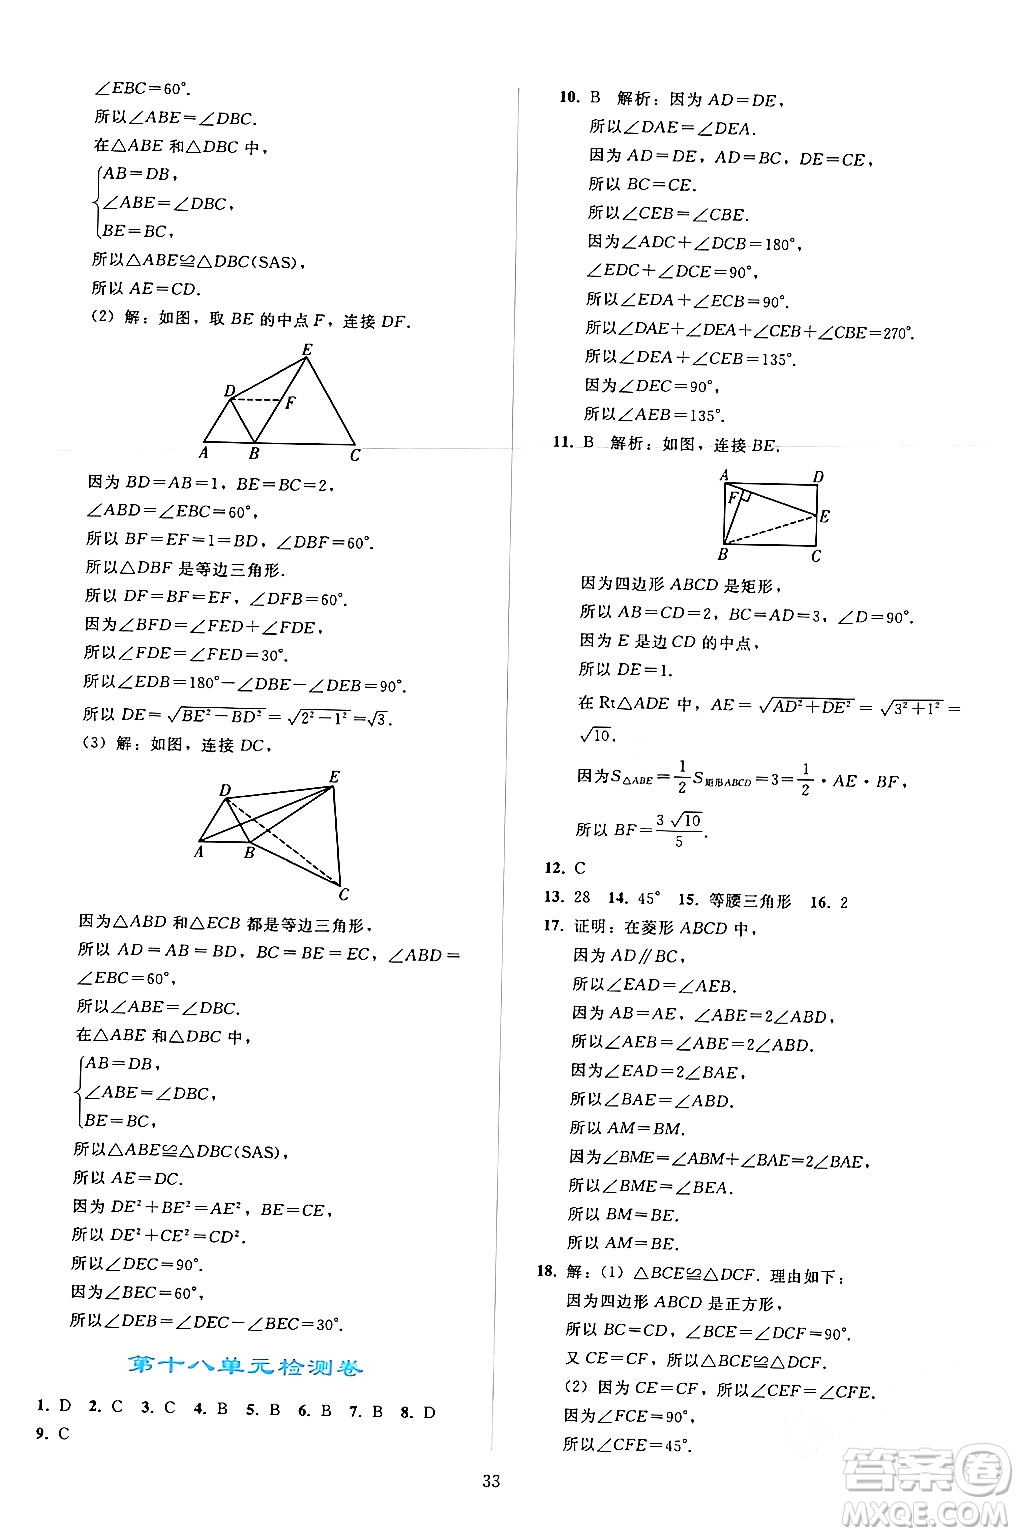 ∠EBC=60°.
所以∠ABE=∠DBC.
在△ABE 和△DBC 中，
AB=DB，
∠ABE=∠DBC，
BE=BC，
所以△ABE≌△DBC(SAS)，
所以 AE=CD.
(2) 解：如图，取 BE 的中点 F，连接 DF.
E
D
F
A B C
因为 BD=AB=1，BE=BC=2，
∠ABD=∠EBC=60°，
所以 BF=EF=1=BD，∠DBF=60°.
所以△DBF 是等边三角形.
所以 DF=BF=EF，∠DFB=60°.
因为∠BFD=∠FED+∠FDE，
所以∠FDE=∠FED=30°.
所以∠EDB=180°-∠DBE-∠DEB=90°.
所以 DE=√(BE²-BD²)=√(2²-1²)=√3.
(3) 解：如图，连接 DC，
E
D
A B
C
因为△ABD 和△ECB 都是等边三角形，
所以 AD=AB=BD，BC=BE=EC，∠ABD=
∠EBC=60°，
所以∠ABE=∠DBC.
在△ABE 和△DBC 中，
AB=DB，
∠ABE=∠DBC，
BE=BC，
所以△ABE≌△DBC(SAS)，
所以 AE=DC.
因为 DE²+BE²=AE²，BE=CE，
所以 DE²+CE²=CD².
所以∠DEC=90°.
因为∠BEC=60°，
所以∠DEB=∠DEC-∠BEC=30°.
第十八单元检测卷
1. D 2. C 3. C 4. B 5. B 6. B 7. B 8. D
9. C
10. B 解析：因为 AD=DE，
所以∠DAE=∠DEA.
因为 AD=DE，AD=BC，DE=CE，
所以 BC=CE.
所以∠CEB=∠CBE.
因为∠ADC+∠DCB=180°，
∠EDC+∠DCE=90°，
所以∠EDA+∠ECB=90°.
所以∠DAE+∠DEA+∠CEB+∠CBE=270°.
所以∠DEA+∠CEB=135°.
因为∠DEC=90°，
所以∠AEB=135°.
11. B 解析：如图，连接 BE.
A D
F
E
B C
因为四边形 ABCD 是矩形，
所以 AB=CD=2，BC=AD=3，∠D=90°.
因为 E 是边 CD 的中点，
所以 DE=1.
在 Rt△ADE 中，AE=√(AD²+DE²)=√(3²+1²)=
√10.
因为S△ABE=1/2 S矩形ABCD=3=1/2·AE·BF，
所以 BF=3√10/5.
12. C
13. 28 14. 45° 15. 等腰三角形 16. 2
17. 证明：在菱形 ABCD 中，
因为 AD∥BC，
所以∠EAD=∠AEB.
因为 AB=AE，∠ABE=2∠ABD，
所以∠AEB=∠ABE=2∠ABD.
因为∠EAD=2∠BAE，
所以∠BAE=∠ABD.
所以 AM=BM.
因为∠BME=∠ABM+∠BAE=2∠BAE，
所以∠BME=∠BEA.
所以 BM=BE.
所以 AM=BE.
18. 解：(1) △BCE≌△DCF. 理由如下：
因为四边形 ABCD 是正方形，
所以 BC=CD，∠BCE=∠DCF=90°.
又 CE=CF，所以△BCE≌△DCF.
(2) 因为 CE=CF，所以∠CEF=∠CFE.
因为∠FCE=90°，
所以∠CFE=45°.
33
答案圈
MXQE.COM